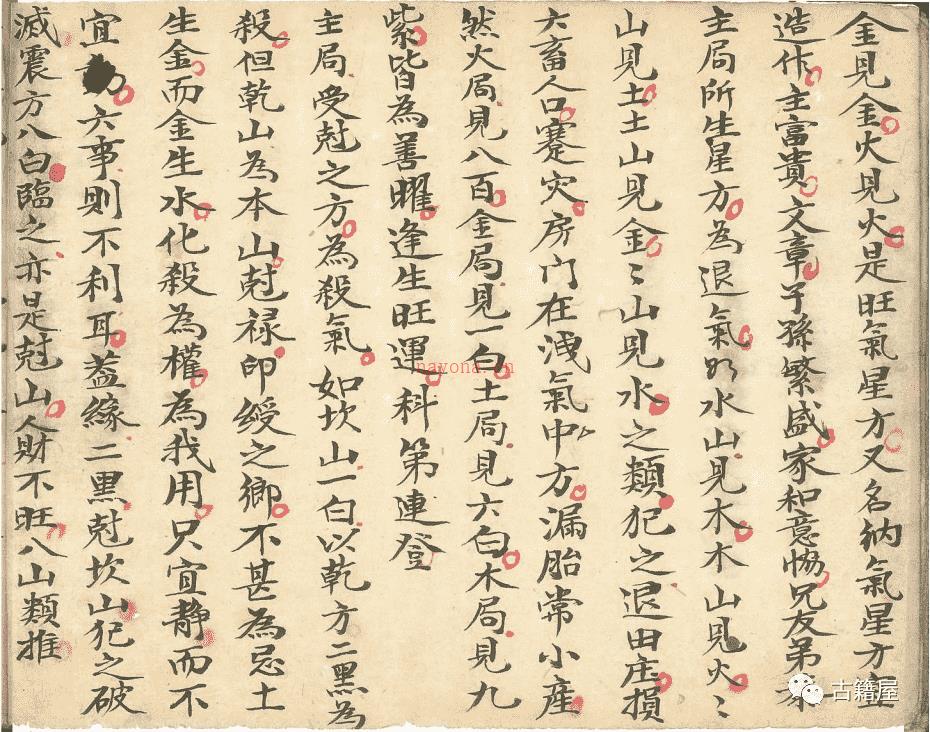 金見金火見火是旺氣星方又名納氣星方宜
造作主富貴文章子孫繁盛家和意恊兄友弟恭
主局所生星方為退氣如水山見木木山見火〻
山見土土山見金〻山見水之類犯之退田庄損
六畜人口蹇灾房門在洩氣中方漏胎常小產
然火局見八百金局見一白土局見六白木局見九
紫皆為善曜逢生旺運科第連登
主局受尅之方為殺氣如坎山一白以乾方二黑為
殺但乾山為本山尅禄印綬之鄉不甚為忌土
生金而金生水化殺為權為我用只宜静而不
宜動六事則不利耳葢緣二黑尅坎山犯之破
滅震方八白臨之亦是尅山人財不旺八山類推
nayona.cn
古籍屋